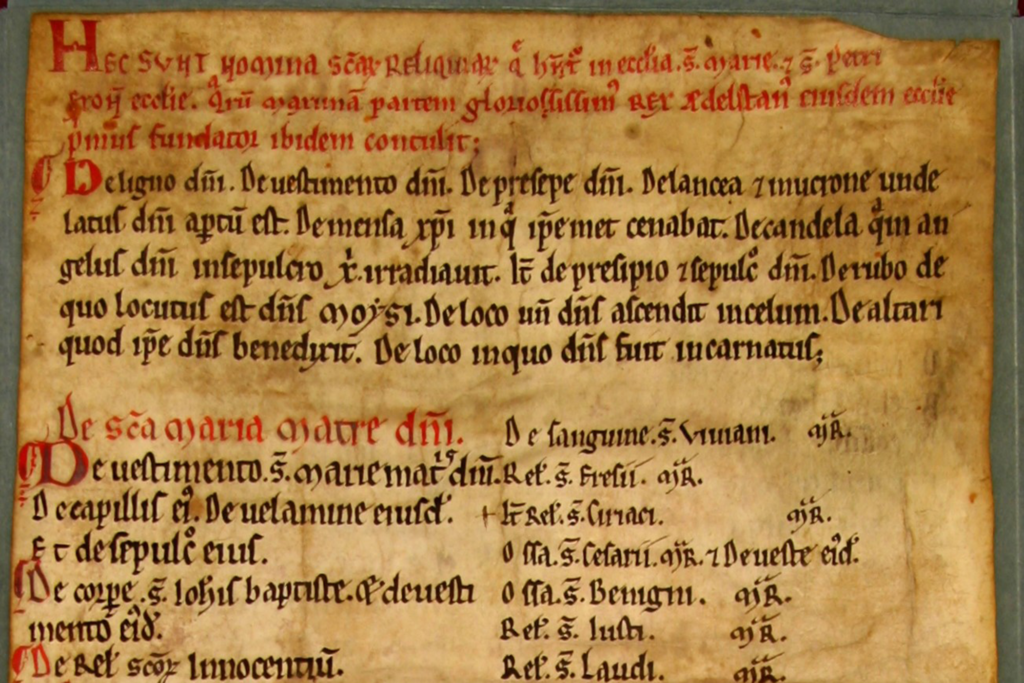 HEC SUNT NOMINA sc̄aꝝ Reliquiaꝝ q̄ hn̄t̄ in eccl̄ia .s̄. Marie. ⁊ .s̄. Petri
eccl̄ie. qͣrū maximā partem gloriosissimꝰ REX Ædelstan̄ eiusdem eccl̄ie
p̄mus fundator ibidem contulit;
De ligno dn̄i. De uestimento dn̄i. De presepe dn̄i. De lancea ⁊ mucrone unde
latus dn̄i aptū est. De mensa xp̄i in qͣ ip̄emet cenabat. De candela qͣm an
gelus dn̄i in sepulcro irradiauit. It̄ de presipio ⁊ sepulcͦ dn̄i. De rubo de
quo locutus est dn̄s Moysi. De loco un̄ dn̄s ascendit in celum. De altari
quod ip̄e dn̄s benedixit. De loco in quo dn̄s fuit incarnatus;
De sc̄a Maria Matre dn̄i.
De uestimento .s̄. Marie matͥs dn̄i.
De capillis eiꝰ. De uelamine eiusd̄.
Et de sepulcͦ eius.
De corpe .s̄. Ioh̄is baptiste. & de uesti
mento eid̄.
De Rel̄ sc̄oꝝ Innocentiū.
De sanguine .s̄. Viuiani. M̄R̄.
Rel̄. s̄. Fresii. M̄R̄.
+ It̄ Rel̄. s̄. Ciriaci. M̄R̄.
Ossa .s̄. Cesarii. M̄R̄. ⁊ De ueste eid̄.
Ossa .s̄. Benigni. M̄R̄.
Rel̄. s̄. Iusti. M̄R̄.
Rel̄. s̄. Laudi. M̄R̄.